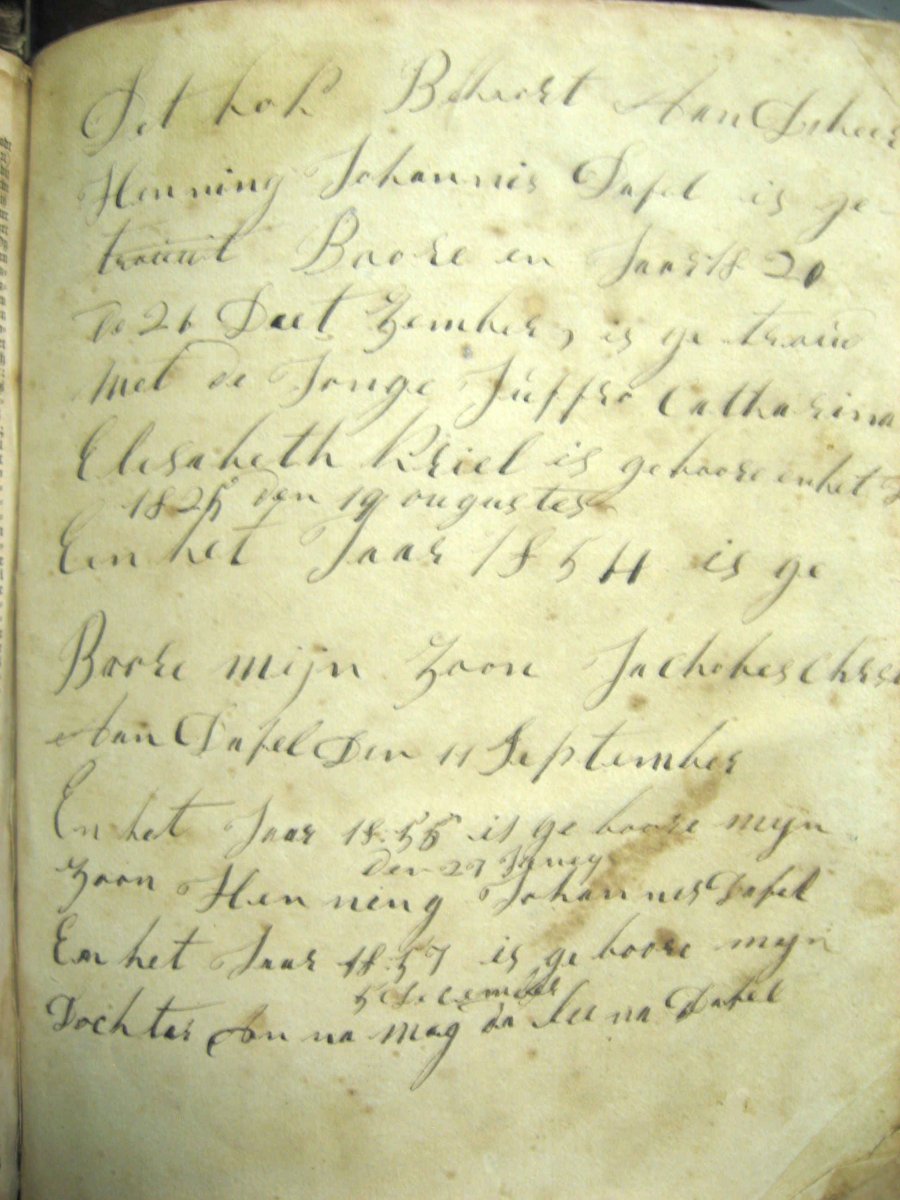 Det bok Behoort Aan D heer
Henning Johannis Dafel is ge-
trouwt Boore en Jaar 18 20
do 26 Deet Zember, is ge troud
Met de Jonge Juffro Catharina
Elesabeth Kriel is geboore enhet
1825 den 19 ougustes
Een het Jaar 1854 is ge
Boore mijn Zoon Jachobes Chrst
Aan Dafel Den 11 September
En het Jaar 18.55 is ge boore mijn
Den 27 Juney
Zoon Henning Johannes Dafel
En het Jaar 18.57 is ge boore mijn
5 december
Dochter An na Mag da lee na Dafel